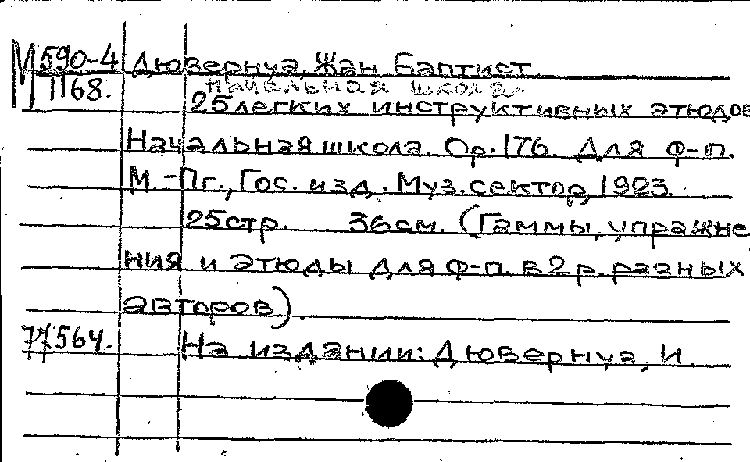 М 590-4 Дювернуа, Жан Батист.
1168. начальная школа.
25 легких инструктивных этюдов
Начальная школа. Ор. 176. Для ф-п.
М.-Пг., Гос. изд. Муз. сектор, 1923.
25 стр. 36 см. (Гаммы, упражне
ния и этюды для ф-п. в 2 р. разных
авторов).
77564. На издании: Дювернуа, И.